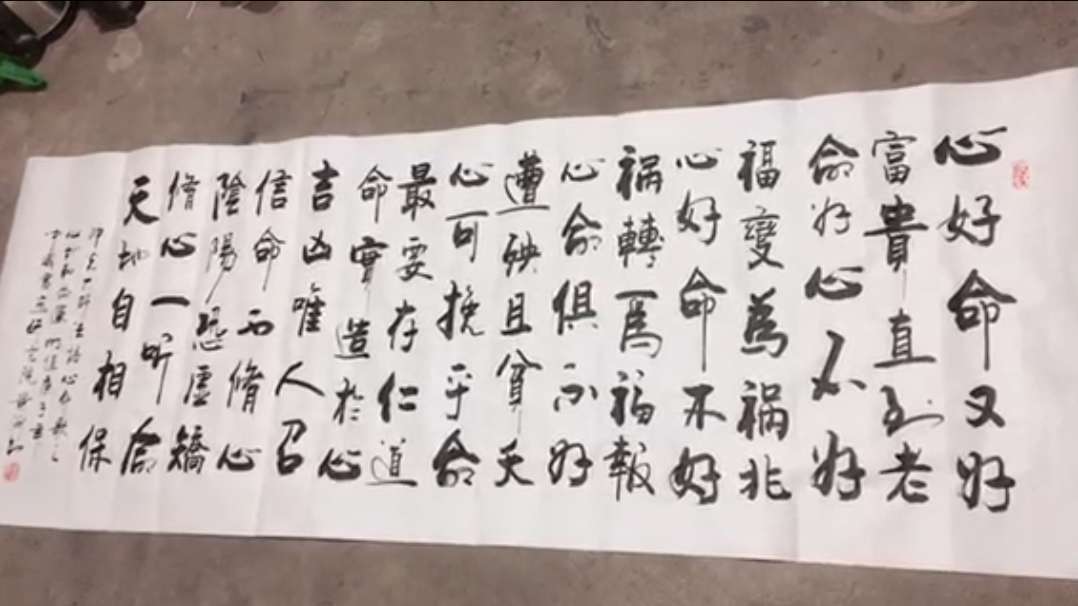 心好命又好
富貴直到老
命好心不好
福變為禍兆
心好命不好
禍轉爲福報
心命俱不好
遭殃且貧夭
心可挽乎命
最要存仁道
命實造於心
吉凶唯人召
信命不脩心
陰陽恐虛矯
脩心一听命
天地自相保